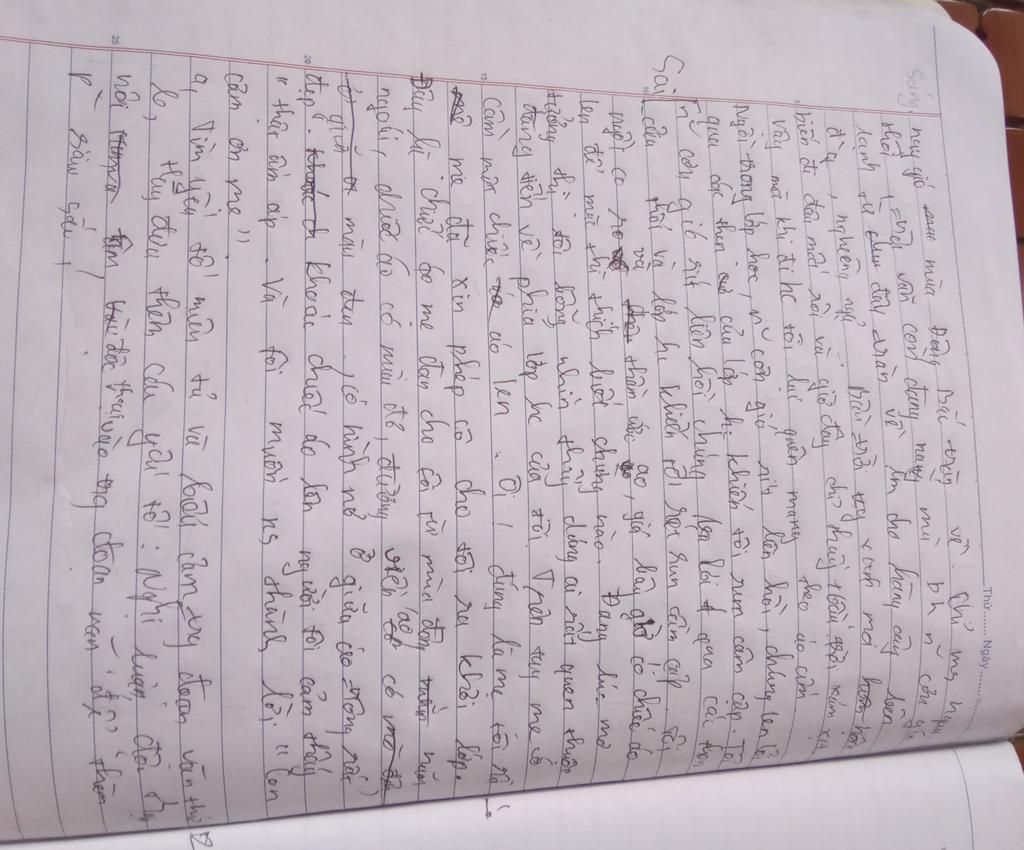 Thứ ........ Ngày ........
Sáng nay gió mùa Đông Bắc tràn về. Chỉ mới hôm
trời vẫn còn đang nắng mà bh n~ cơn gió
lạnh từ đâu tràn về làm cho hàng cây bên
đg, nghiêng ngả. Bầu trời xanh mọi hôm
biến đi đâu mất rồi và giờ đây chỉ thấy bầu trời xám xịt
vậy mà khi đi hc tôi lại quên mang theo áo ấm
Ngồi trong lớp học, n~ cơn gió rít liên hồi, chúng len lỏi
qua các then cửa của lớp h. khiến tôi run cầm cập. Tôi
Sai n~ cơn gió rít liên hồi chúng len lỏi qua cái then
cửa và lớp h. khiến tôi run cầm cập. Tôi
ngồi co ro và thầm ước ao, giá bây giờ có chiếc áo
len để mặc thì thích biết chừng nào. Đang lúc mơ
tưởng thì tôi bỗng nhìn thấy dáng ai rất quen thuộc
đang tiến về phía lớp hc của tôi. Trên tay mẹ
cầm một chiếc áo len. Ôi! đúng là mẹ tôi rồi
mẹ đã xin phép cô cho tôi ra khỏi lớp.
Đây là chiếc áo mẹ đan cho tôi từ mùa đông năm
ngoái, chiếc áo có màu đỏ, đường viền áo có
màu đen, có hình nơ ở giữa áo trông rất
đẹp. khoác chiếc áo lên người tôi cảm thấy
thật ấm áp. Và tôi muốn ns thành lời "con
cảm ơn mẹ"
a, Tìm yếu tố miêu tả và biểu cảm trg đoạn văn
b, Hãy đưa thêm các yếu tố: Nghị luận, đối thoại
nội tâm, độc thoại vào trg đoạn văn để đoạn văn thêm
p² sâu sắc!